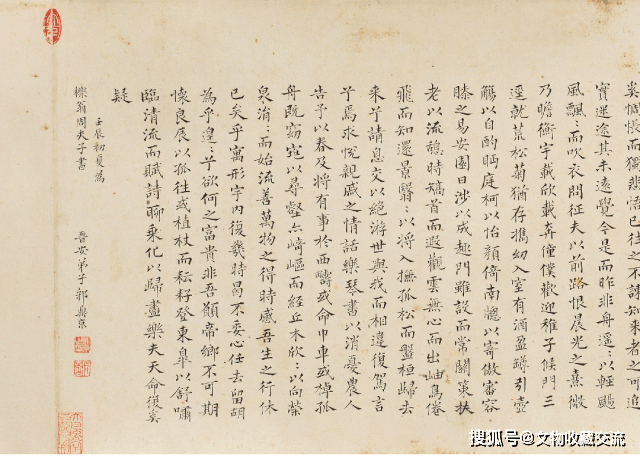 奚惆悵而獨悲悟已往之不諫知來者之可追
實迷途其未遠覺今是而昨非舟遙:以輕颺
風飄:而吹衣問征夫以前路恨晨光之熹微
乃瞻衡宇載欣載奔僮僕歡迎稚子候門三
逕就荒松菊猶存携幼入室有酒盈罇引壺
觴以自酌眄庭柯以怡顏倚南牕以寄傲審容
膝之易安園日涉以成趣門雖設而常關策扶
老以流憩時矯首而遐觀雲無心而出岫鳥倦
飛而知還景翳:以將入撫孤松而盤桓歸去
來兮請息交以絕游世與我而相違復駕言
兮焉求悅親戚之情話樂琴書以消憂農人
告予以春及將有事於西疇或命巾車或棹孤
舟既窈窕以尋壑亦崎嶇而經丘木欣:以向榮
泉涓:而始流善萬物之得時感吾生之行休
已矣乎寓形宇內復幾時曷不委心任去留胡
為乎遑:兮欲何之富貴非吾願帝鄉不可期
懷良辰以孤往或植杖而耘耔登東皋以舒嘯
臨清流而賦詩聊乘化以歸盡樂夫天命復奚
疑
壬辰初夏為
櫟翁周夫子書
晉安弟子
搜狐号@文物收藏交流